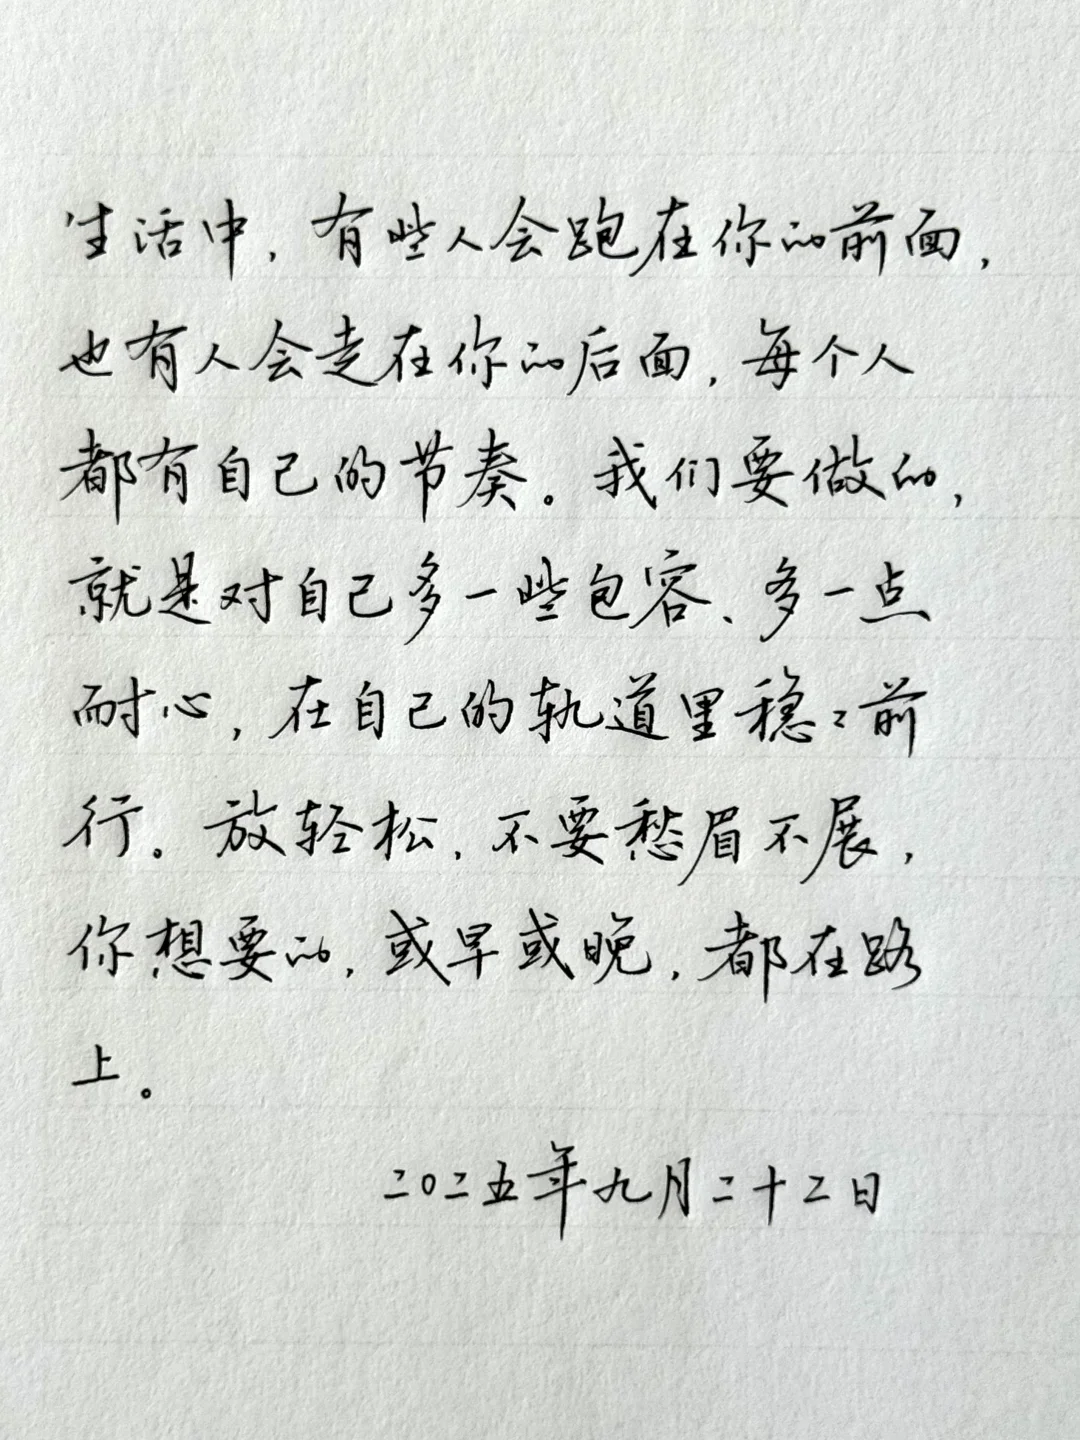 生活中，有些人会跑在你的前面，
也有人会走在你的后面，每个人
都有自己的节奏。我们要做的，
就是对自己多一些包容、多一点
耐心，在自己的轨道里稳々前
行。放轻松，不要愁眉不展，
你想要的，或早或晚，都在路
上。
二〇二五年九月二十二日